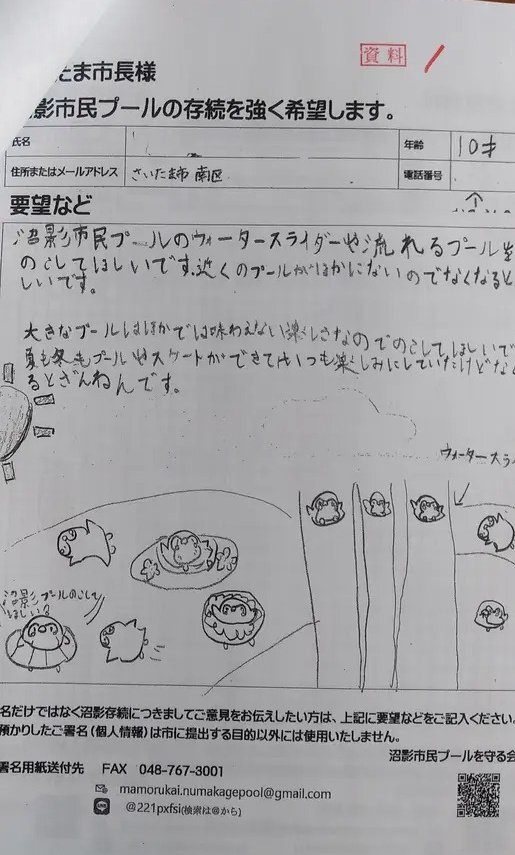 資料
たま市長様
影市民プールの存続を強く希望します。
氏名
年齢
10才
住所またはメールアドレス
さいたま市 南区
電話番号
要望など
沼影市民プールのウォータースライダーや流れるプールを
のこしてほしいです。近くのプールがほかにないのでなくなると
しいです。
大きなプールはほかでは味わえない楽しさなのでのこしてほしいで
夏も冬もプールやスケートができていつも楽しみにしていたけどな
るとざんねんです。
ウォータースライ
沼影プールのこして
ほしい?
名だけではなく沼影存続につきましてご意見をお伝えしたい方は、上記に要望などをご記入ください。
預かりしたご署名(個人情報)は市に提出する目的以外には使用いたしません。
沼影市民プールを守る会
署名用紙送付先 FAX 048-767-3001
mamorukai.numakagepool@gmail.com
@221pxfsi(検索は@から)